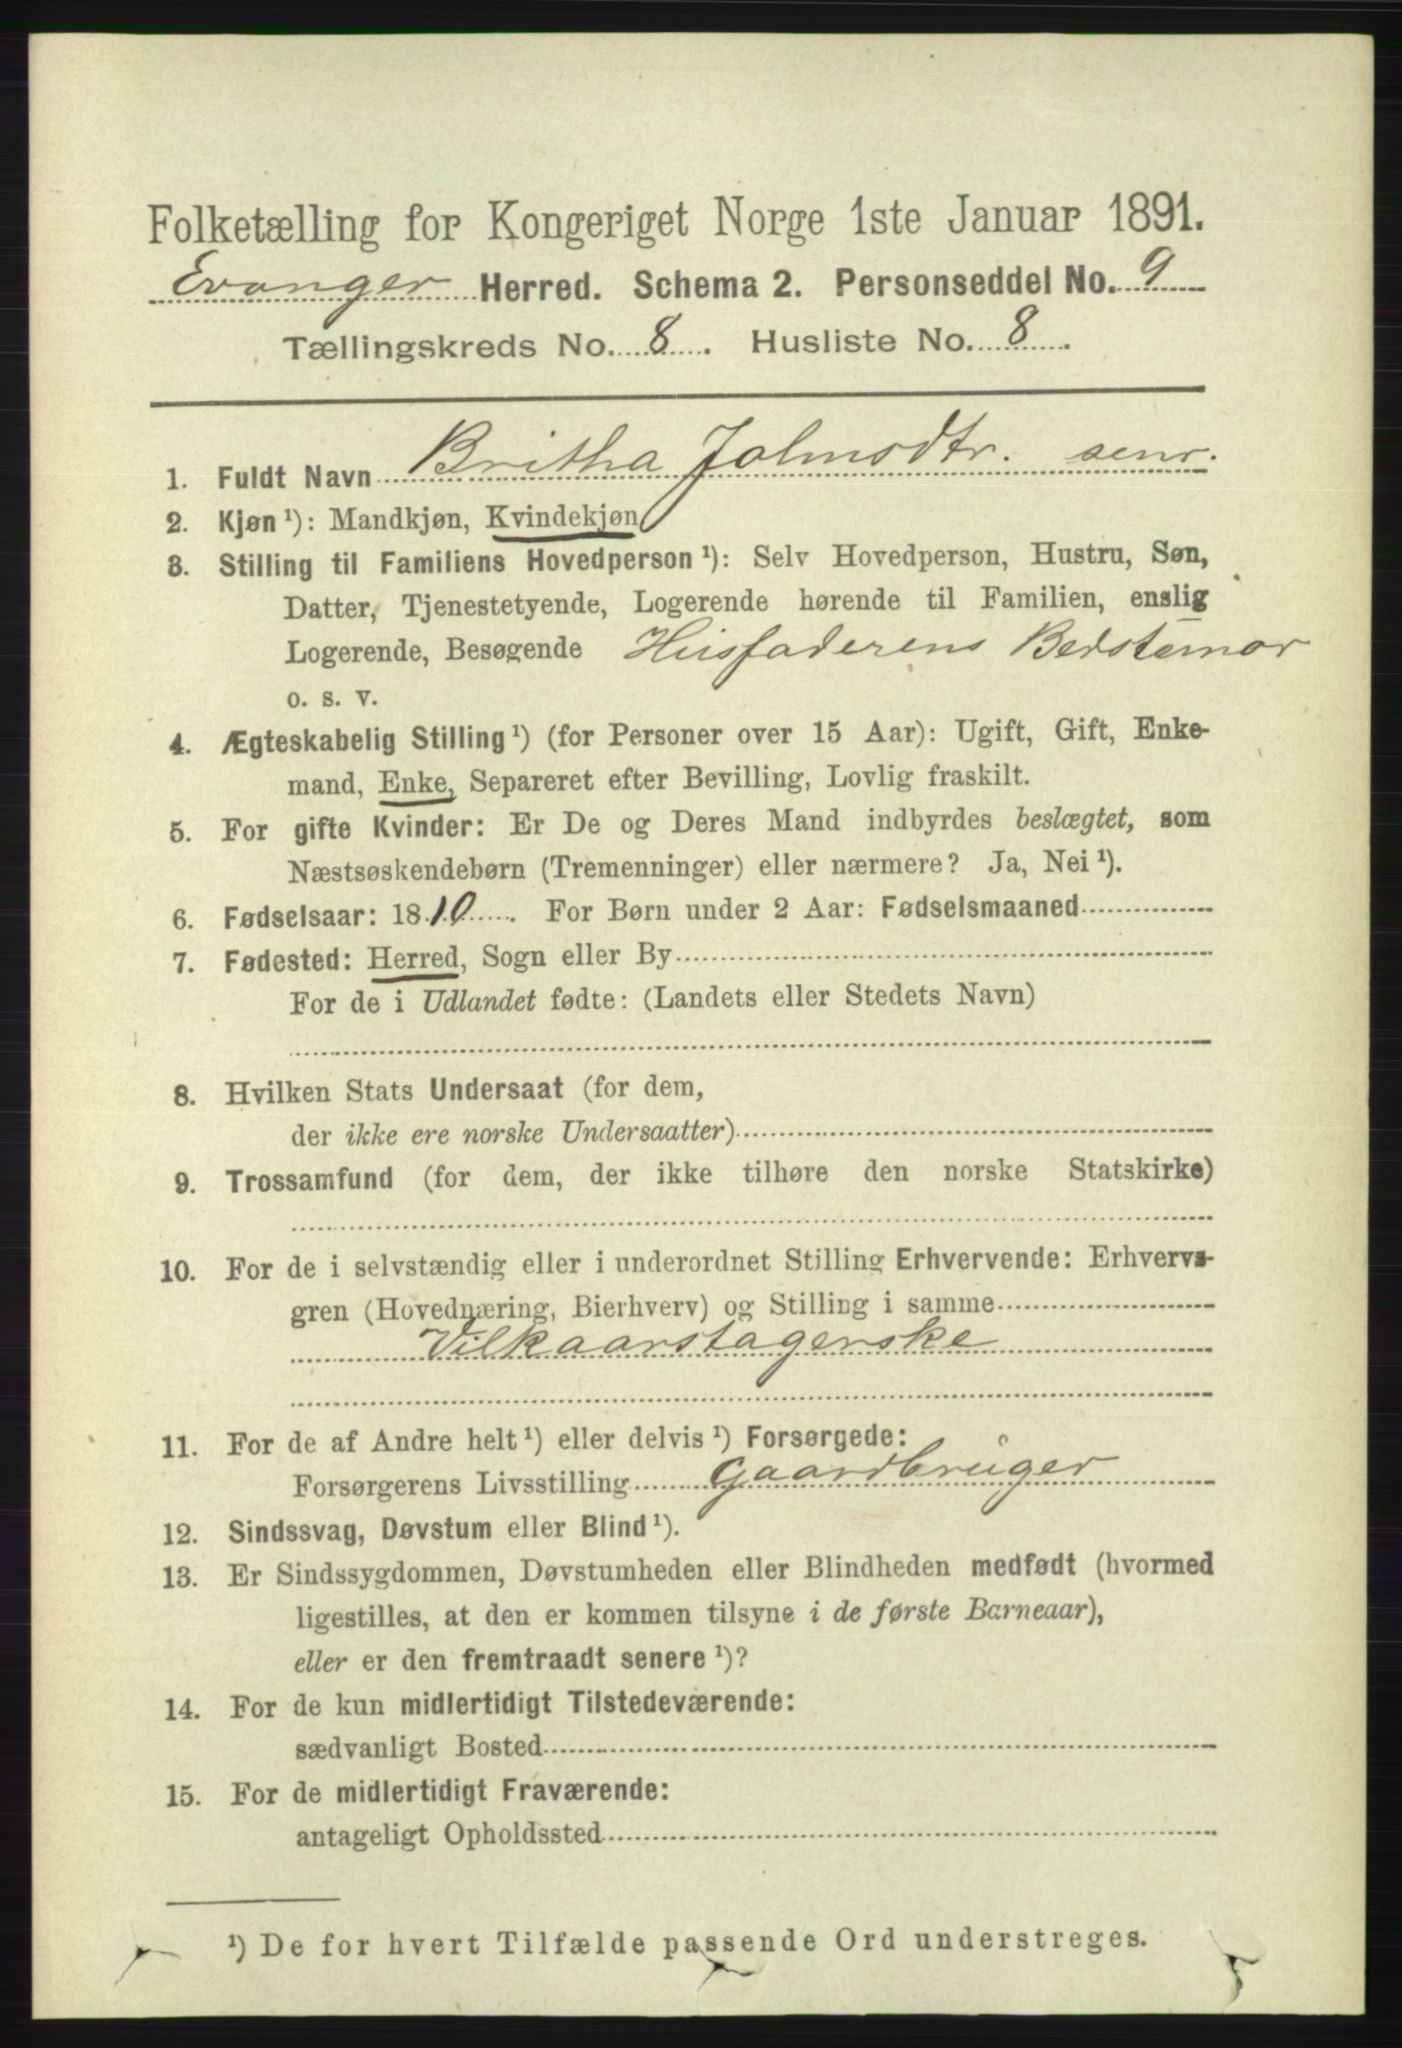 Folketælling for Kongeriget Norge 1ste Januar 1891.
Evanger Herred. Schema 2. Personseddel No. 9
Tællingskreds No. 8. Husliste No. 8.
1. Fuldt Navn Britha Johnsdtr. senr.
2. Kjøn ¹): Mandkjøn, Kvindekjøn
3. Stilling til Familiens Hovedperson ¹): Selv Hovedperson, Hustru, Søn,
Datter, Tjenestetyende, Logerende hørende til Familien, enslig
Logerende, Besøgende Husfaderens Bedstemor
o. s. v.
4. Ægteskabelig Stilling ¹) (for Personer over 15 Aar): Ugift, Gift, Enke-
mand, Enke, Separeret efter Bevilling, Lovlig fraskilt.
5. For gifte Kvinder: Er De og Deres Mand indbyrdes beslægtet, som
Næstsøskendebørn (Tremenninger) eller nærmere? Ja, Nei ¹).
6. Fødselsaar: 1810. For Børn under 2 Aar: Fødselsmaaned
7. Fødested: Herred, Sogn eller By
For de i Udlandet fødte: (Landets eller Stedets Navn)
8. Hvilken Stats Undersaat (for dem,
der ikke ere norske Undersaatter)
9. Trossamfund (for dem, der ikke tilhøre den norske Statskirke)
10. For de i selvstændig eller i underordnet Stilling Erhvervende: Erhvervs-
gren (Hovednæring, Bierhverv) og Stilling i samme
Vilkaarstagerske
11. For de af Andre helt ¹) eller delvis ¹) Forsørgede:
Forsørgerens Livsstilling Gaardbruger
12. Sindssvag, Døvstum eller Blind ¹).
13. Er Sindssygdommen, Døvstumheden eller Blindheden medfødt (hvormed
ligestilles, at den er kommen tilsyne i de første Barneaar),
eller er den fremtraadt senere ¹)?
14. For de kun midlertidigt Tilstedeværende:
sædvanligt Bosted
15. For de midlertidigt Fraværende:
antageligt Opholdssted
¹) De for hvert Tilfælde passende Ord understreges.